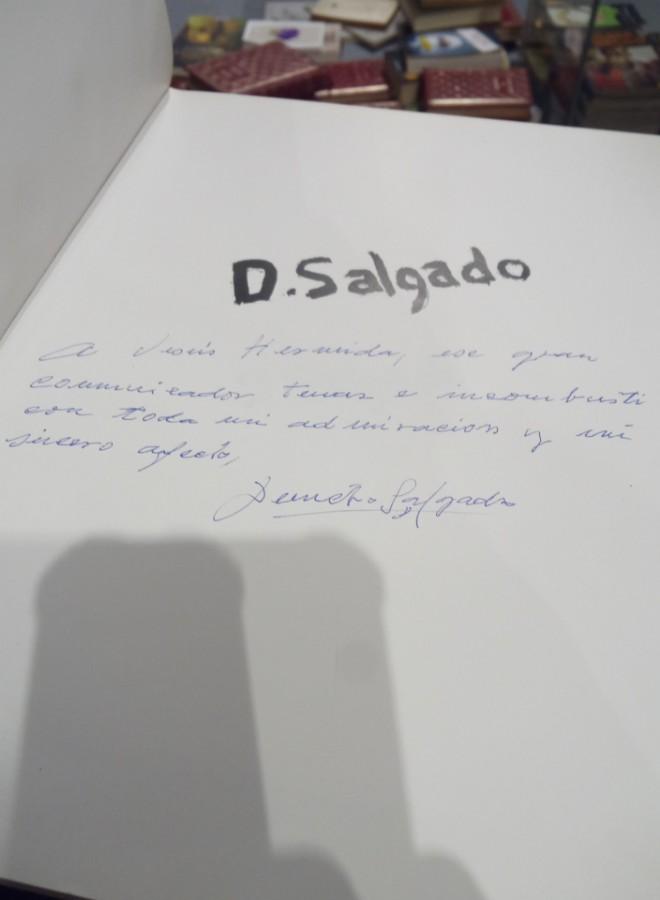 D. Salgado
A Jesús Hermida, ese gran
comunicador tenaz e incombusti
con toda mi admiración y mi
sincero afecto,
Demetrio Salgado